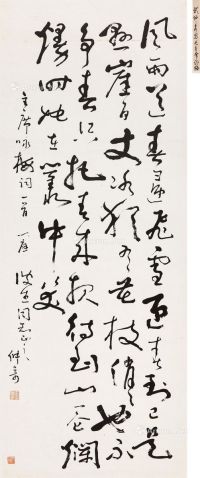 風雨送春歸飛雪迎春到已是
懸崖百丈冰猶有花枝俏俏也不
爭春只把春來報待到山花爛
熳時她在叢中笑
主席咏梅詞一首
同志正之 仲奇